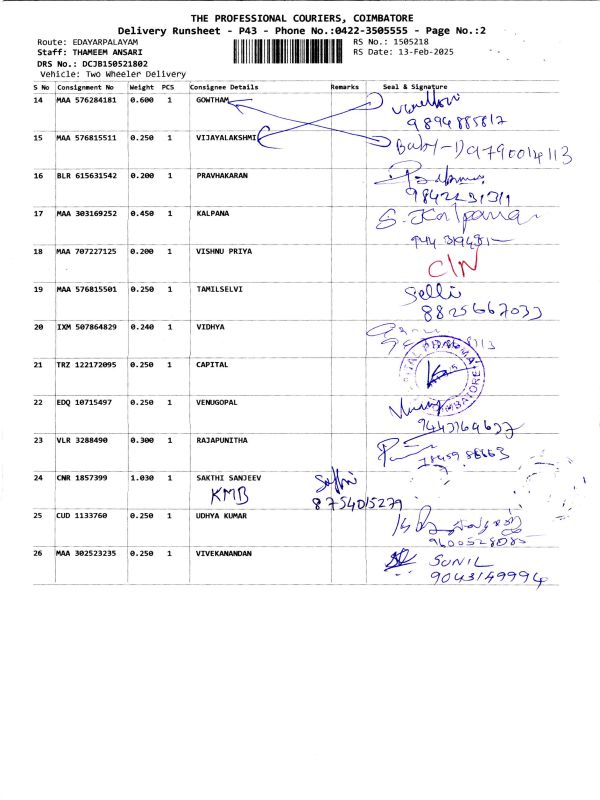 THE PROFESSIONAL COURIERS, COIMBATORE
Delivery Runsheet - P43 - Phone No.:0422-3505555 - Page No.:2
Route: EDAYARPALAYAM RS No.: 1505218
Staff: THAMEEM ANSARI RS Date: 13-Feb-2025
DRS No.: DCJB150521802
Vehicle: Two Wheeler Delivery
S No Consignment No Weight PCS Consignee Details Remarks Seal & Signature
14 MAA 576284181 0.600 1 GOWTHAM
9894885817
15 MAA 576815511 0.250 1 VIJAYALAKSHMI
Baby-1) 9790014113
16 BLR 615631542 0.200 1 PRAVHAKARAN
9842231311
17 MAA 303169252 0.450 1 KALPANA S. Kalpana
18 MAA 707227125 0.200 1 VISHNU PRIYA
C/N
19 MAA 576815501 0.250 1 TAMILSELVI Selli
8825667033
20 IXM 507864829 0.240 1 VIDHYA
21 TRZ 122172095 0.250 1 CAPITAL
22 EDQ 10715497 0.250 1 VENUGOPAL
9443169637
23 VLR 3288490 0.300 1 RAJAPUNITHA
24 CNR 1857399 1.030 1 SAKTHI SANJEEV
KMB 8754015279
25 CUD 1133760 0.250 1 UDHYA KUMAR
9600528085
26 MAA 302523235 0.250 1 VIVEKANANDAN SUNIL
9043149994